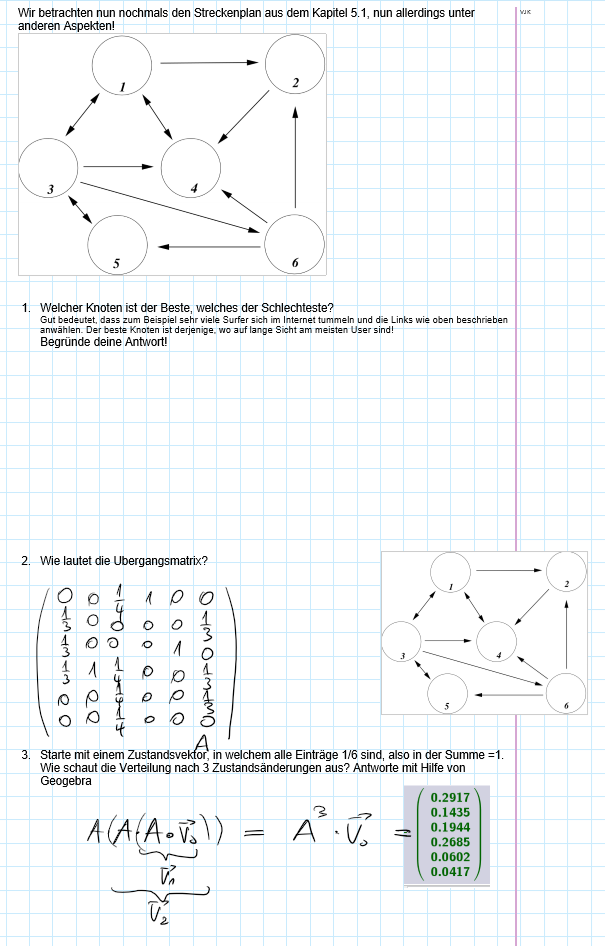 Wir betrachten nun nochmals den Streckenplan aus dem Kapitel 5.1, nun allerdings unter
anderen Aspekten!
VJK
1
2
3
4
5
6
1. Welcher Knoten ist der Beste, welches der Schlechteste?
Gut bedeutet, dass zum Beispiel sehr viele Surfer sich im Internet tummeln und die Links wie oben beschrieben
anwählen. Der beste Knoten ist derjenige, wo auf lange Sicht am meisten User sind!
Begründe deine Antwort!
2. Wie lautet die Übergangsmatrix?
0 0 1/4 1 0 0
1/3 0 0 0 0 1/3
1/3 0 0 0 1 0
1/3 1 1/4 0 0 1/3
0 0 1/4 0 0 1/3
0 0 1/4 0 0 0
A
1
2
3
4
5
6
3. Starte mit einem Zustandsvektor, in welchem alle Einträge 1/6 sind, also in der Summe =1.
Wie schaut die Verteilung nach 3 Zustandsänderungen aus? Antworte mit Hilfe von
Geogebra
A(A(A∘v⃗₀)) = A³ · v⃗₀ =
v⃗₁
v⃗₂
0.2917
0.1435
0.1944
0.2685
0.0602
0.0417